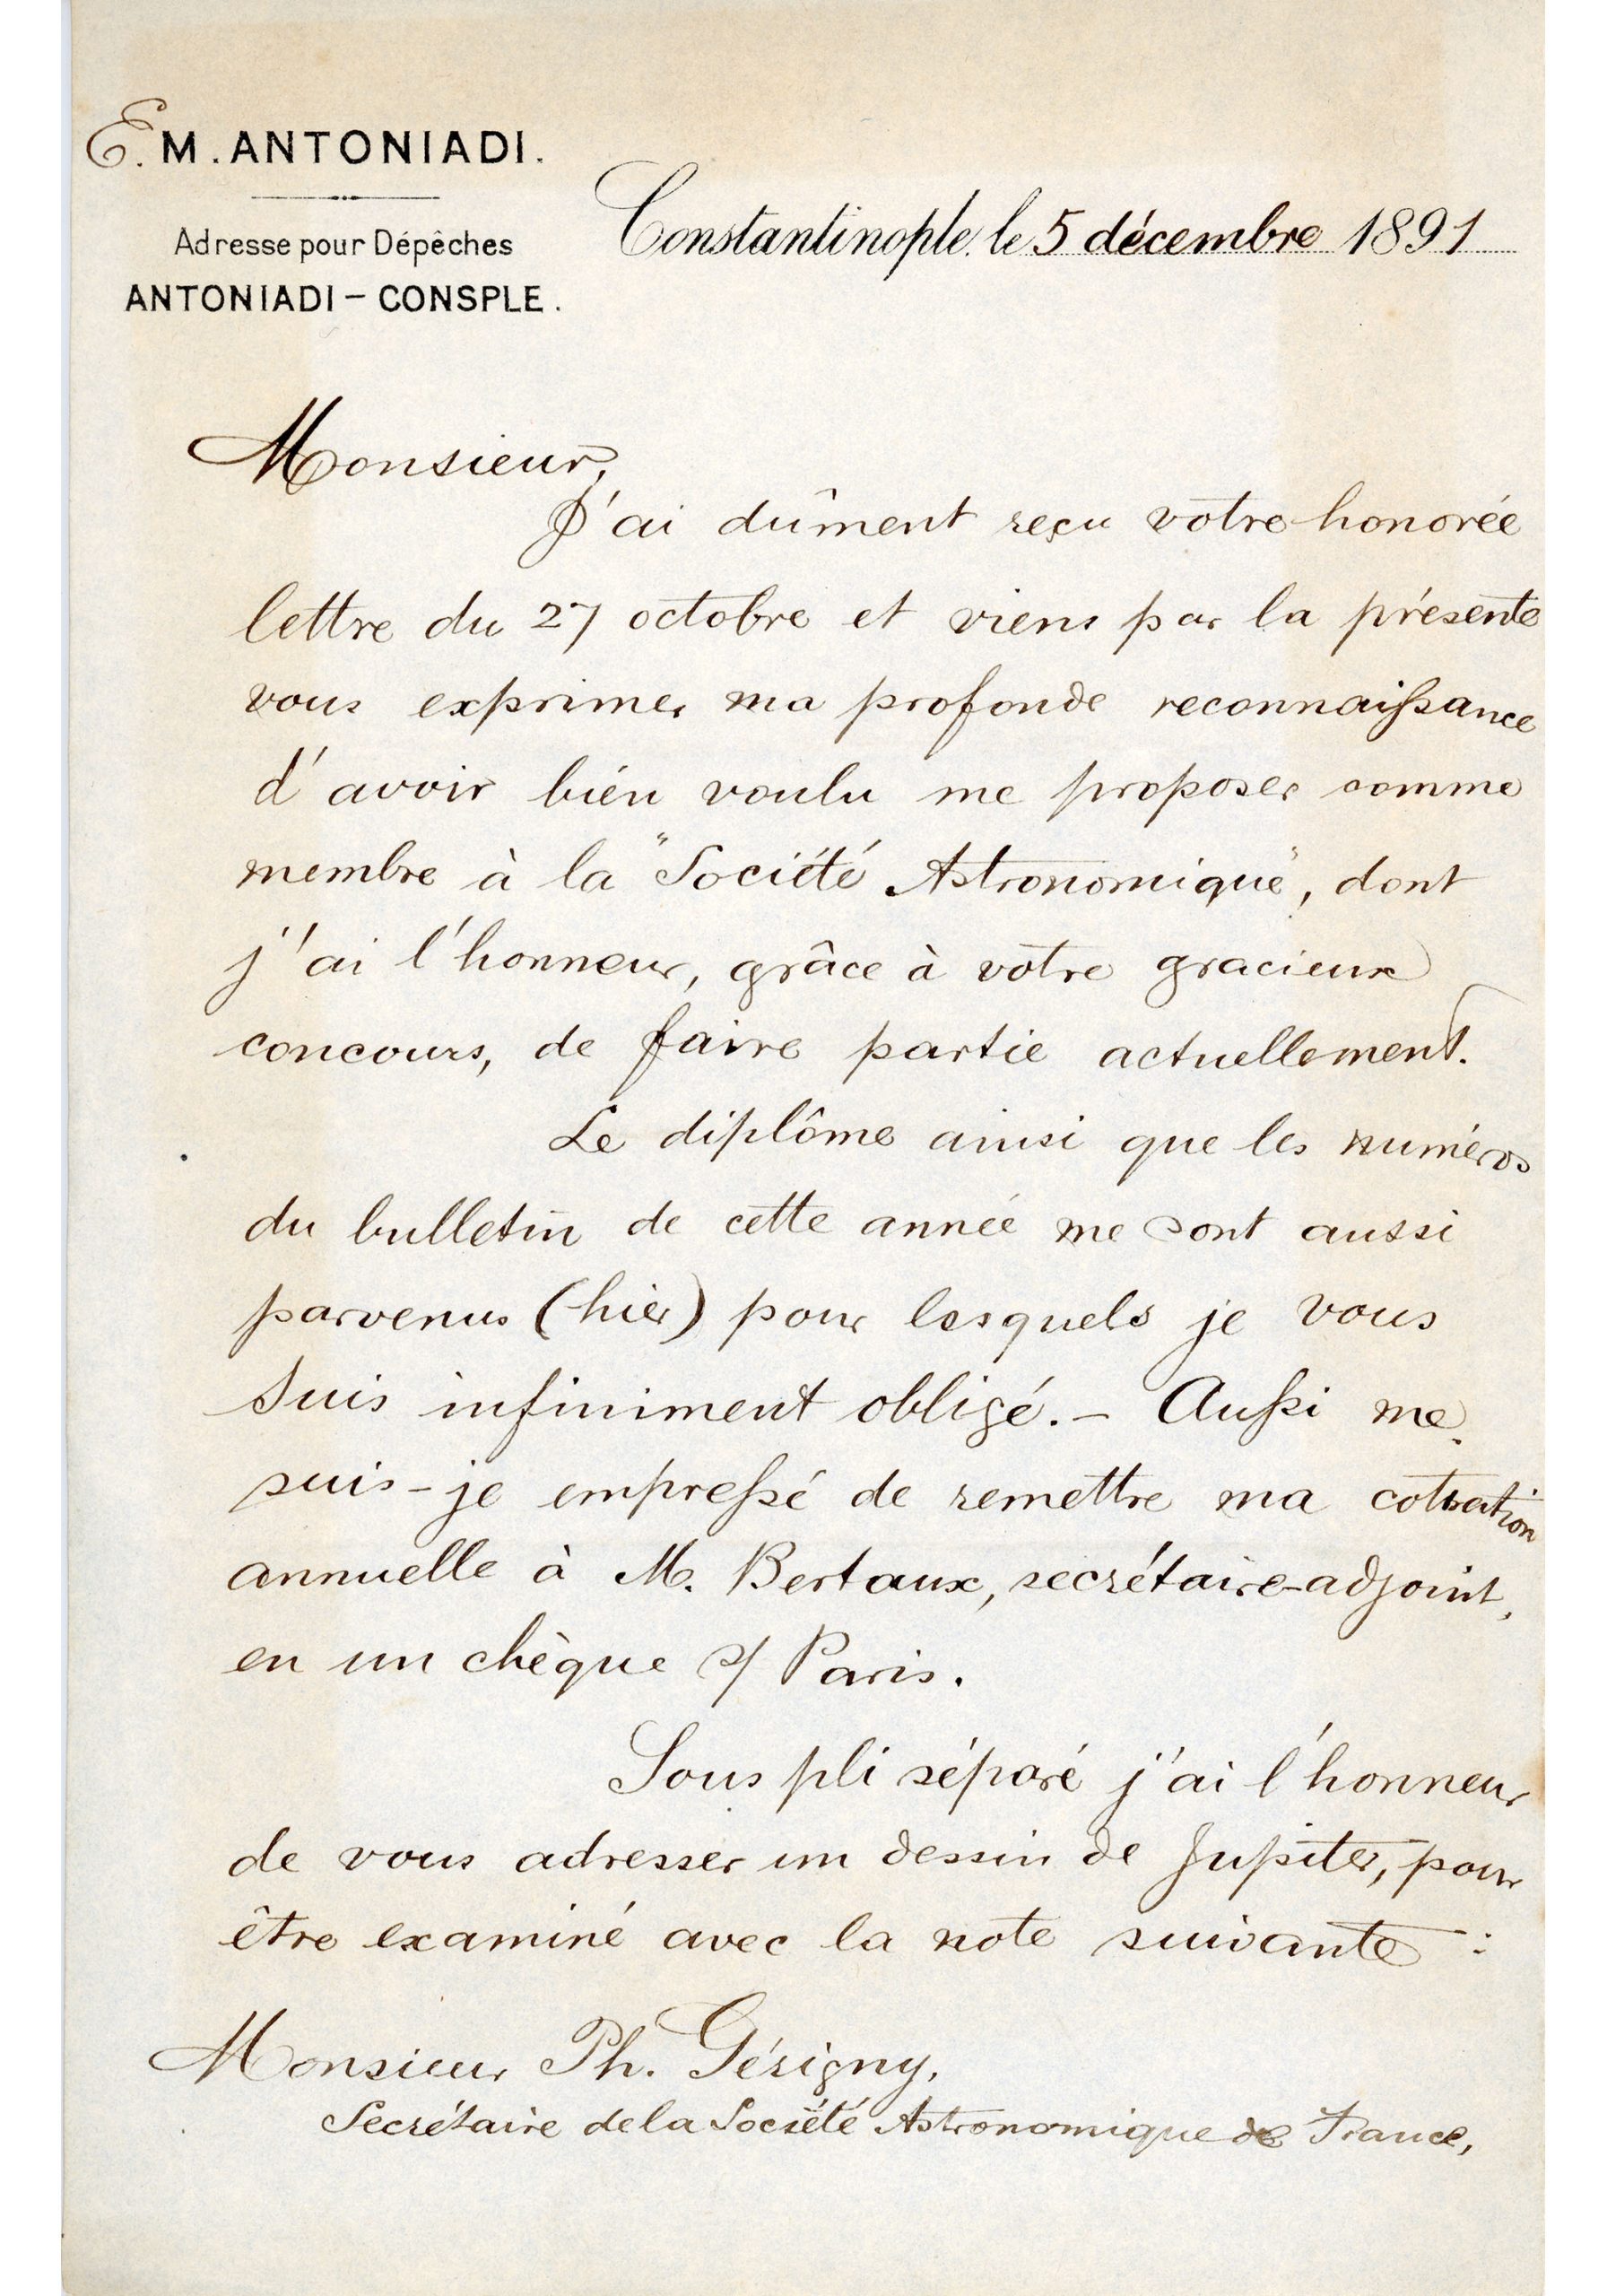 E. M. ANTONIADI.
Adresse pour Dépêches
ANTONIADI – CONSPLE.
Constantinople, le 5 décembre 1891
Monsieur,
J'ai dûment reçu votre honorée
lettre du 27 octobre et viens par la présente
vous exprimer ma profonde reconnaissance
d'avoir bien voulu me proposer comme
membre à la "Société Astronomique", dont
j'ai l'honneur, grâce à votre gracieux
concours, de faire partie actuellement.
Le diplôme ainsi que les numéros
du bulletin de cette année me sont aussi
parvenus (hier) pour lesquels je vous
suis infiniment obligé. – Aussi me
suis-je empressé de remettre ma cotisation
annuelle à M. Bertaux, secrétaire-adjoint,
en un chèque s/ Paris.
Sous pli séparé j'ai l'honneur
de vous adresser un dessin de Jupiter, pour
être examiné avec la note suivante :
Monsieur Ph. Gérigny,
Secrétaire de la Société Astronomique de France,